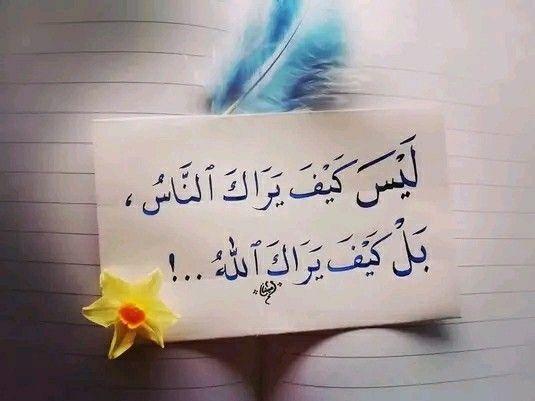 لَيْسَ كَيْفَ يَرَاكَ ٱلنَّاسُ ،
بَلْ كَيْفَ يَرَاكَ ٱللهُ ...!